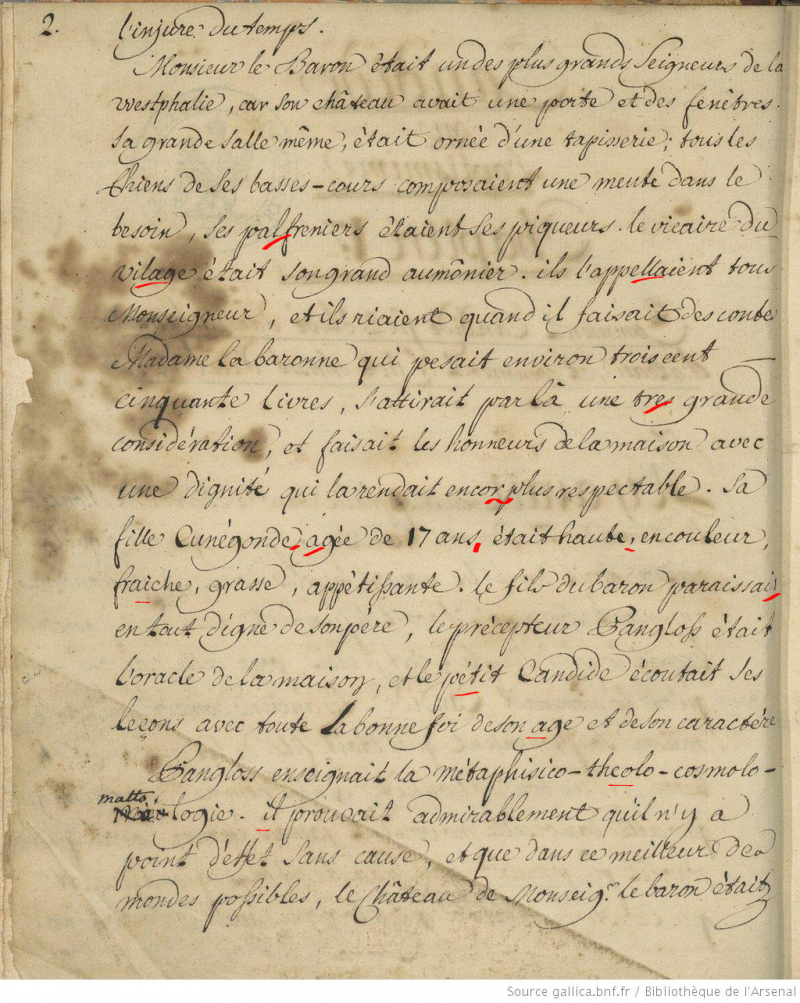 2.
l'injure du temps.
Monsieur le Baron était un des plus grands Seigneurs de la
Westphalie, car son château avait une porte et des fenêtres.
Sa grande salle même, était ornée d'une tapisserie; tous les
Chiens de ses basses-cours composaient une meute dans le
besoin, ses palfreniers étaient ses piqueurs. le vicaire du
vilage était son grand aumônier. ils l'appellaient tous
Monseigneur, et ils riaient quand il faisait des contes
Madame la baronne qui pesait environ trois cent
cinquante Livres, s'attirait par là une tres grande
considération, et faisait les honneurs de la maison avec
une dignité qui la rendait encor plus respectable. Sa
fille Cunégonde agée de 17 ans, était haute, en couleur,
fraiche, grasse, appétissante. le fils du baron paraissait
en tout digne de son père, le précepteur Pangloss était
l'oracle de la maison, et le pétit Candide écoutait ses
leçons avec toute la bonne foi de son age et de son caractére
Pangloss enseignait la métaphisico-theolo-cosmolo-
matto
logie. il prouvait admirablement qu'il n'y a
point d'effet sans cause, et que dans ce meilleur des
mondes possibles, le Château de Monseigr. le baron était
Source gallica.bnf.fr / Bibliothèque de l'Arsenal